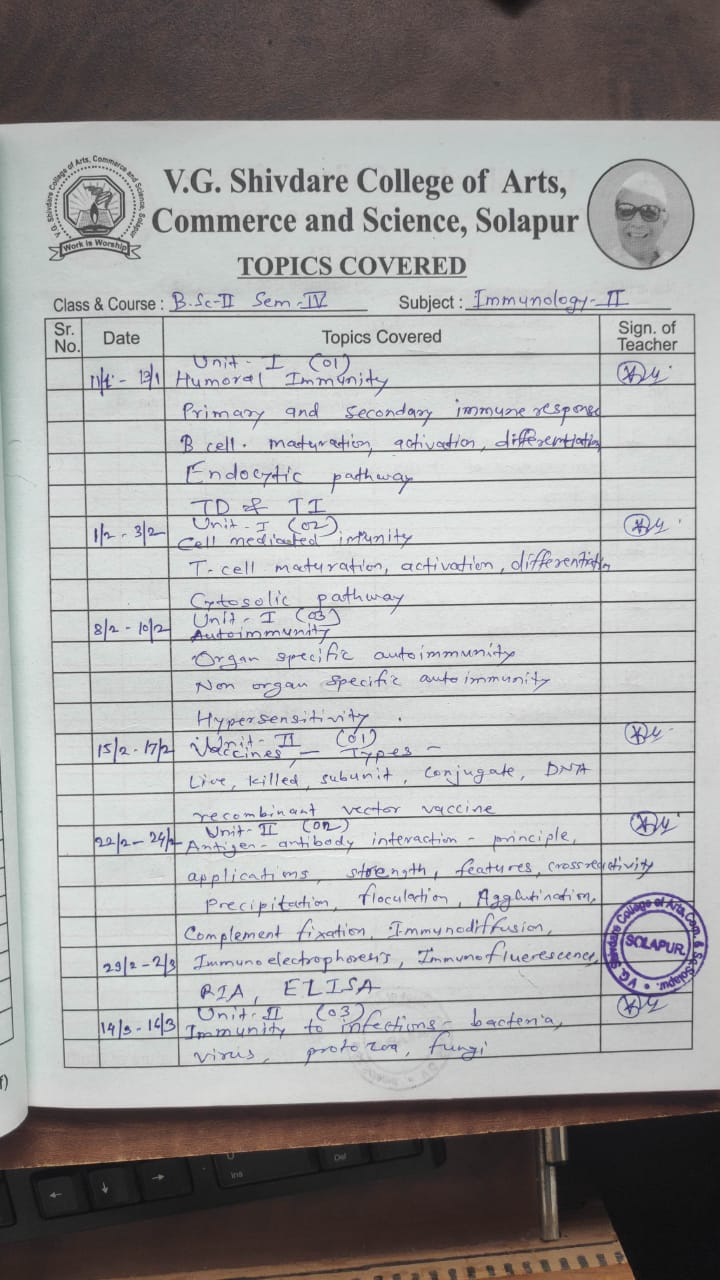 V.G. Shivdare College of Arts, Commerce and Science, Solapur
Work is Worship
V.G. Shivdare College of Arts,
Commerce and Science, Solapur
TOPICS COVERED
Class & Course : B.Sc-II Sem-IV Subject : Immunology-II
Sr. No. Date Topics Covered Sign. of Teacher
Unit-I (01)
11/1 - 13/1 Humoral Immunity
Primary and secondary immune response
B cell. maturation, activation, differentiation
Endocytic pathway
TD & TI
Unit-I (02)
1/2 - 3/2 Cell mediated immunity
T-cell maturation, activation, differentiation
Cytosolic pathway
Unit-I (03)
8/2 - 10/2 Autoimmunity
Organ specific autoimmunity
Non organ specific autoimmunity
Hypersensitivity.
Unit-II (01)
15/2 - 17/2 Vaccines, - Types -
Live, killed, subunit, conjugate, DNA
recombinant vector vaccine
Unit-II (02)
22/2 - 24/2 Antigen-antibody interaction - principle,
applications, strength, features, crossreactivity
Precipitation, floculation, Agglutination,
Complement fixation, Immunodiffusion,
29/2 - 2/3 Immunoelectrophoresis, Immunofluerescence,
RIA, ELISA
V.G. Shivdare College of Arts, Com. & Sci. Solapur.
SOLAPUR.
Unit-II (03)
14/3 - 16/3 Immunity to infections - bacteria,
virus, protozoa, fungi
Ins
Del